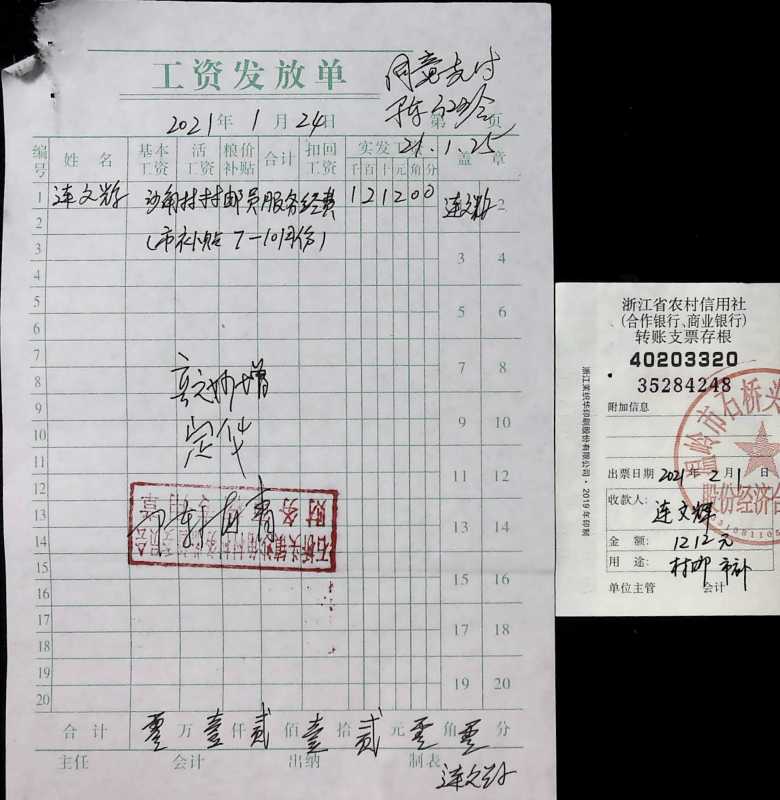 工资发放单
同意支付
21.1.25
2021年1月24日 第 页
编号 姓名 基本工资 活工资 粮价补贴 合计 扣回工资 实发工资 盖章
千百十元角分
1 连文辉 沙角村村邮员服务经费 121200 连文辉 2
2 (市补贴7-10月份)
3 3 4
4
5 5 6
6
7 7 8
8
9 9 10
10
11 11 12
12
13 13 14
14
15 15 16
16
17 17 18
18
19 19 20
20
石桥头镇
财务
合计 零万壹仟贰佰壹拾贰元零角零分
主任 会计 出纳 制表
连文辉
浙江省农村信用社
(合作银行、商业银行)
转账支票存根
40203320
35284248
附加信息
出票日期 2021年2月1日
收款人:
连文辉
金额: 1212元
用途: 村邮市补
单位主管 会计
温岭市石桥头
股份经济合